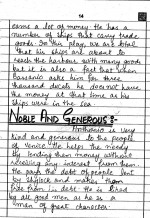 14
earns a lot of money. He has a
number of ships that carry trade
goods. In this play, we are told
that his ships are about to
reach the harbour with many goods
but it is also a fact that when
Bassanio asks him for three
thousand ducats he does not have
the money at that time as his
ships were in the sea.
NOBLE AND GENEROUS :-
Anthonio is very
kind and generous to the people
of Venice. He helps the needy
by lending them money without
receiving any interest from them.
He pays the debt of people lent
by Shylock and makes them
free from it. He is liked
by all good men as he is a
man of great character.